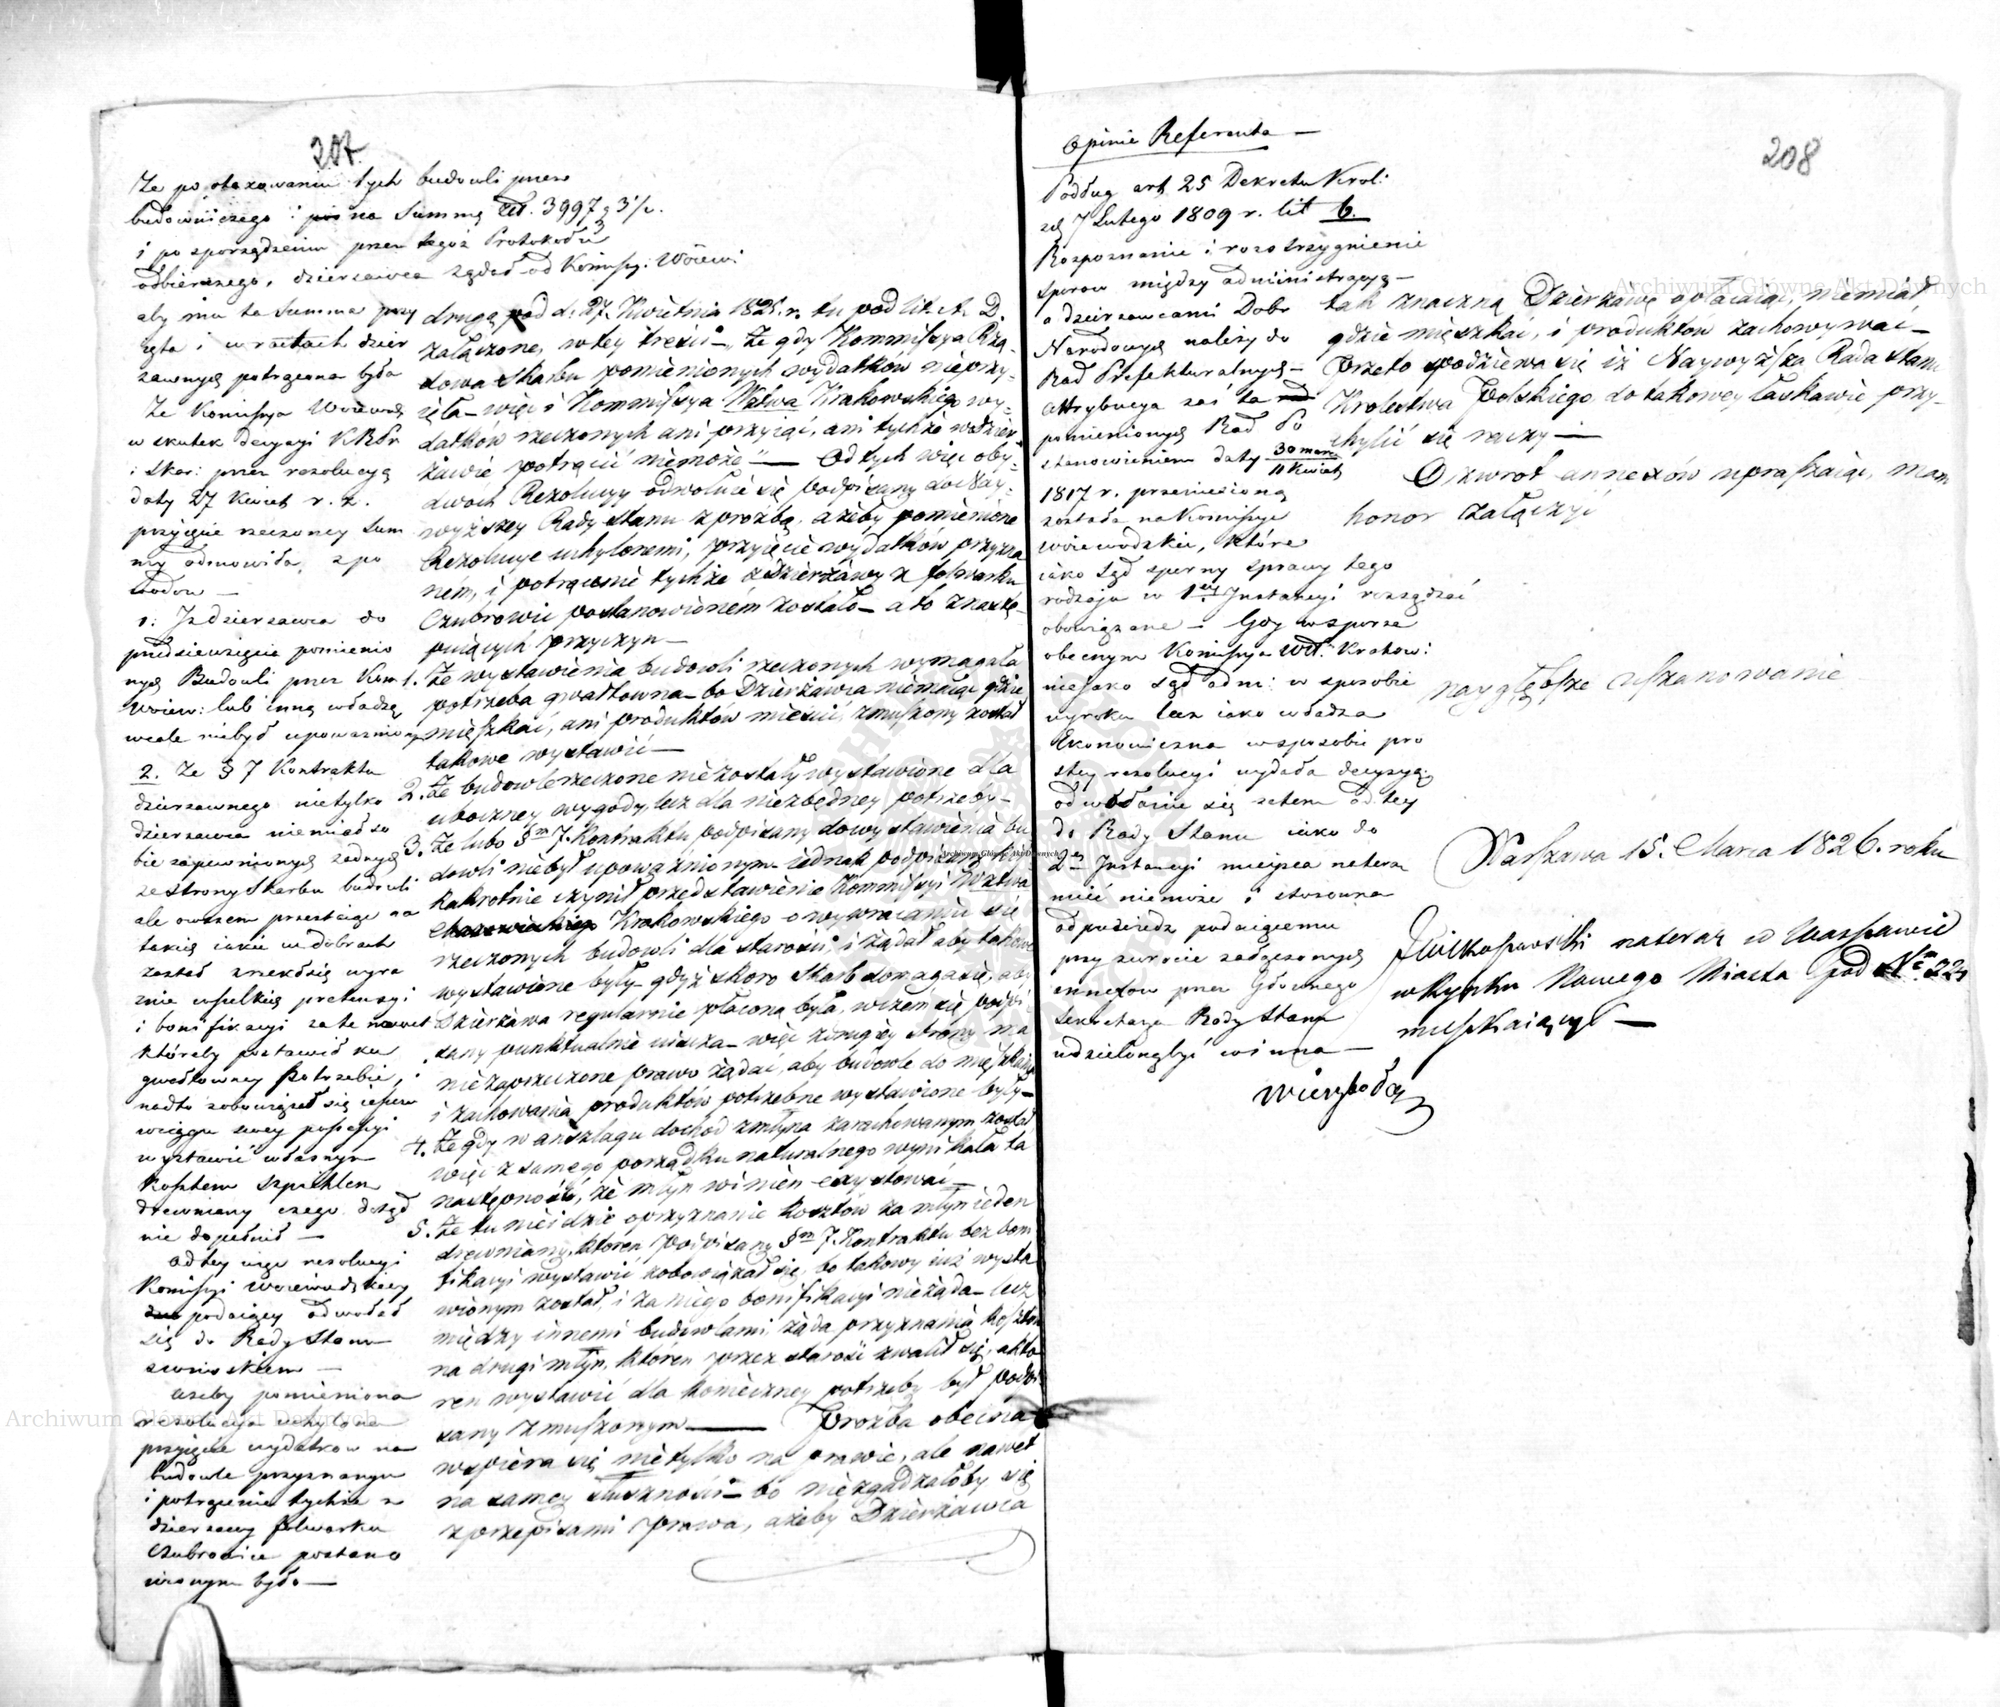 207.
Że po otaxowaniu tych budowli przez
budowniczego na Summę Złł. 3997 g 3 1/2.
i po sporządzeniu przez tegoż Protokołu
odbierczego, dzierżawca żądał od Komissyi Woiew:
aby mu ta Summa przy
ięta i w ratach dzier
żawnych potrącona była
Że Komissya Woiewódz
w skutek decyzyi KRPr
i Skar: przez rezolucyą
daty 27 Kwiet r. z.
przyięcie rzeczoney Sum
my odmówiła, z po
wodów —
1: Iż dzierżawca do
przedsięwzięcia pomienio
nych Budowli przez Kom
Woiew: lub inną władzę
wcale niebył upoważniony
2. Że § 7 Kontraktu
dzierżawnego nietylko
dzierżawca niemiał so
bie zapewnionych żadnych
ze strony Skarbu budowli
ale owszem przestaiąc na
takich iakie w dobrach
zastał zrzekł się wyra
źnie wszelkich pretensyi
i bonifikacyi za te nawet
któreby postawił ku
gwałtowney potrzebie,
nadto zobowiązał się ieszcze
w ciągu swey possessyi
wystawić własnym
kosztem szpichlerz
drewniany czego dotąd
nie dopełnił —
Od tey więc rezolucyi
Komissyi Woiewódzkiey
podaiący odwołał
się do Rady Stanu
z wnioskiem —
ażeby pomieniona
rezolucya uchylona
przyięcie wydatków na
budowle przyznanym
i potrącenie tychże z
dzierżawy folwarku
Czubrowice postano
wionym było —
drugą pod d. 27. Kwietnia 1825. r. tu pod lit. A. D.
załączone, w tey treści — „że gdy Kommissya Rzą-
dowa Skarbu pomienionych wydatków nieprzy-
ięła — więc i Kommissya Wdztwa Krakowskiego wy-
datków rzeczonych ani przyiąć, ani tychże w dzier-
żawie potrącić niemoże" — Od tych więc oby-
dwóch Rezolucyy odwołuie się podpisany do Nay-
wyższey Rady Stanu z prośbą, ażeby pomienione
Rezolucye uchylonemi, przyięcie wydatków przyzna
ném, i potrącenie tychże z dzierżawy z folwarku
Czubrowic postanowioném zostało — a to z nastę-
puiących przyczyn —
1. Że wystawienia budowli rzeczonych wymagała
potrzeba gwałtowna — bo Dzierżawca niemaiąc gdzie
mięszkać, ani produktów mieścić, zmuszony został
takowe wystawić —
2. Że budowle rzeczone nie zostały wystawione dla
uboczney wygody, lecz dla niezbędney potrzeby —
3. Że lubo §m 7. Kontraktu podpisany do wystawienia bu
dowli niebył upoważnionym — iednak podpisany kil
kakrotnie czynił przedstawienie Kommissyi Wdztwa
Krakowskiego o wywracaniu się
rzeczonych budowli dla starości i żądał aby takowe
wystawione były — gdyż skoro Skarb domaga się, aby
Dzierżawa regularnie płaconą była, w czem się podpi
sany punktualnie uiszcza — więc z drugiey strony ma
niezaprzeczone prawo żądać, aby budowle do mięszkania
i zachowania produktów potrzebne wystawione były —
4. Że gdy w anszlagu dochód z młyna zarachowanym został
więc z samego porządku naturalnego wynikała ta
następność, że młyn winien exystować —
5. Że tu nieidzie o przyznanie kosztów za młyn ieden
drewniany, któren podpisany §m 7. Kontraktu bez boni
fikacyi wystawić zobowiązał się, bo takowy iuż wysta
wionym został, i za niego bonifikacyi nieżąda — lecz
między innemi budowlami żąda przyznania kosztów
na drugi młyn, któren przez starość zwalił się, a któ
ren wystawić dla konieczney potrzeby był podpi
sany zmuszonym — Prośba obecna
wspiera się nietylko na prawie, ale nawet
na samey słuszności — bo niezgadzałoby się
z przepisami prawa, ażeby Dzierżawca
Opinia Referenta —
208
Podług art 25 Dekretu Krol:
z d. 7 Lutego 1809 r. lit b.
Rozpoznanie i rozstrzygnienie
sporów między administracyą —
a dzierżawcami Dóbr
Narodowych należy do
Rad Prefekturalnych —
attrybucya zaś ta
pomienionych Rad Po
stanowieniem daty 30 marc/11 Kwiet
1817 r. przeniesioną
została na Komissye
Woiewódzkie, które
iako Sąd sporny sprawy tego
rodzaiu w 1ey Instancyi rozsądzać
obowiązane — Gdy w sporze
obecnym Komissya Wdt. Krakow:
nie iako Sąd adm: w sposobie
wyroku lecz iako władza
Ekonomiczna w sposobie pro
stey rezolucyi wydała decyzyą,
odwołanie się zatem od tey
do Rady Stanu iako do
2ey Instancyi mieysca na teraz
mieć niemoże i stosowna
odpowiedź podaiącemu
przy zwrocie załączonych
annexów przez Głównego
Sekretarza Rady Stanu
udzieloną być winna —
Wierzbołowicz
tak znaczną Dzierżawę opłacaiąc, niemiał
gdzie mięszkać, i produktów zachowywać —
Przeto spodziewa się iż Naywyższa Rada Stanu
Królestwa Polskiego do takowey łaskawie przy-
chylić się raczy —
O zwrot annexów upraszaiąc, mam
honor załączyć
naygłębsze uszanowanie
Warszawa 15. Marca 1826. roku
Wielkopolski na teraz w Warszawie
w Rynku Nowego Miasta pod Nrem 221
mieszkaiący —
Archiwum Główne Akt Dawnych
Archiwum Główne Akt Dawnych
Archiwum Główne Akt Dawnych
Archiwum Główne Akt Dawnych